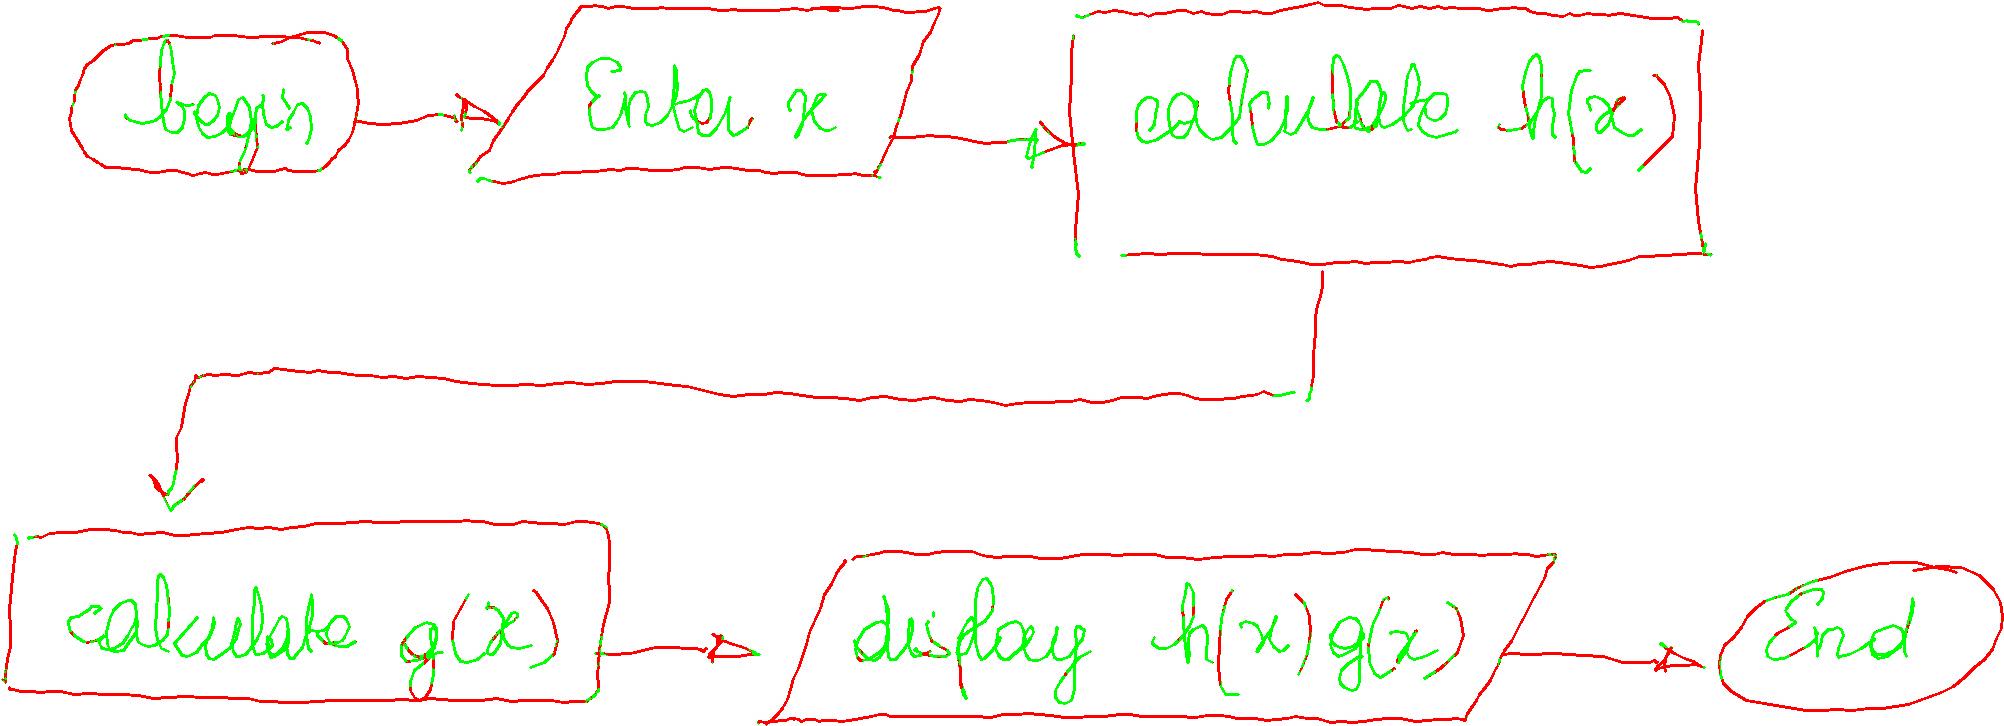 begin
Enter x
calculate h(x)
calculate g(x)
display h(x) g(x)
End